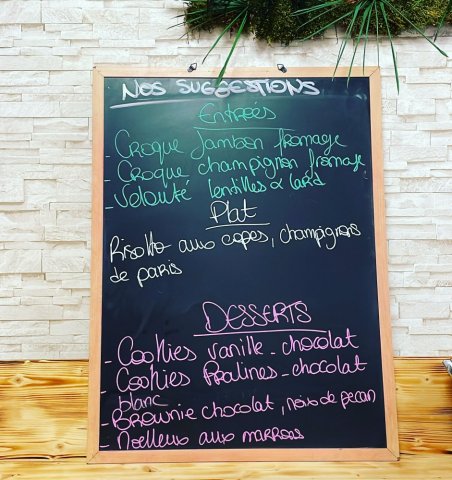 NOS SUGGESTIONS
Entrées
- Croque Jambon fromage
- Croque champignon fromage
- Velouté lentilles & lard
Plat
Risotto aux cèpes, champignons
de paris
DESSERTS
- Cookies vanille - chocolat
- Cookies Pralines - chocolat
blanc
- Brownie chocolat, noix de pecan
- Moelleux aux marrons